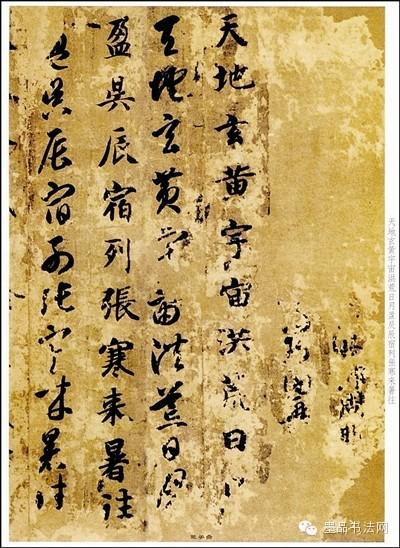 天地玄黄宇宙洪荒日月盈昃辰宿列张寒来暑往
天地玄黄宇宙洪荒日月
天地玄黄宇宙洪荒日月
盈昃辰宿列張寒来暑往
盈昃辰宿列張寒来暑往
墨品书法网